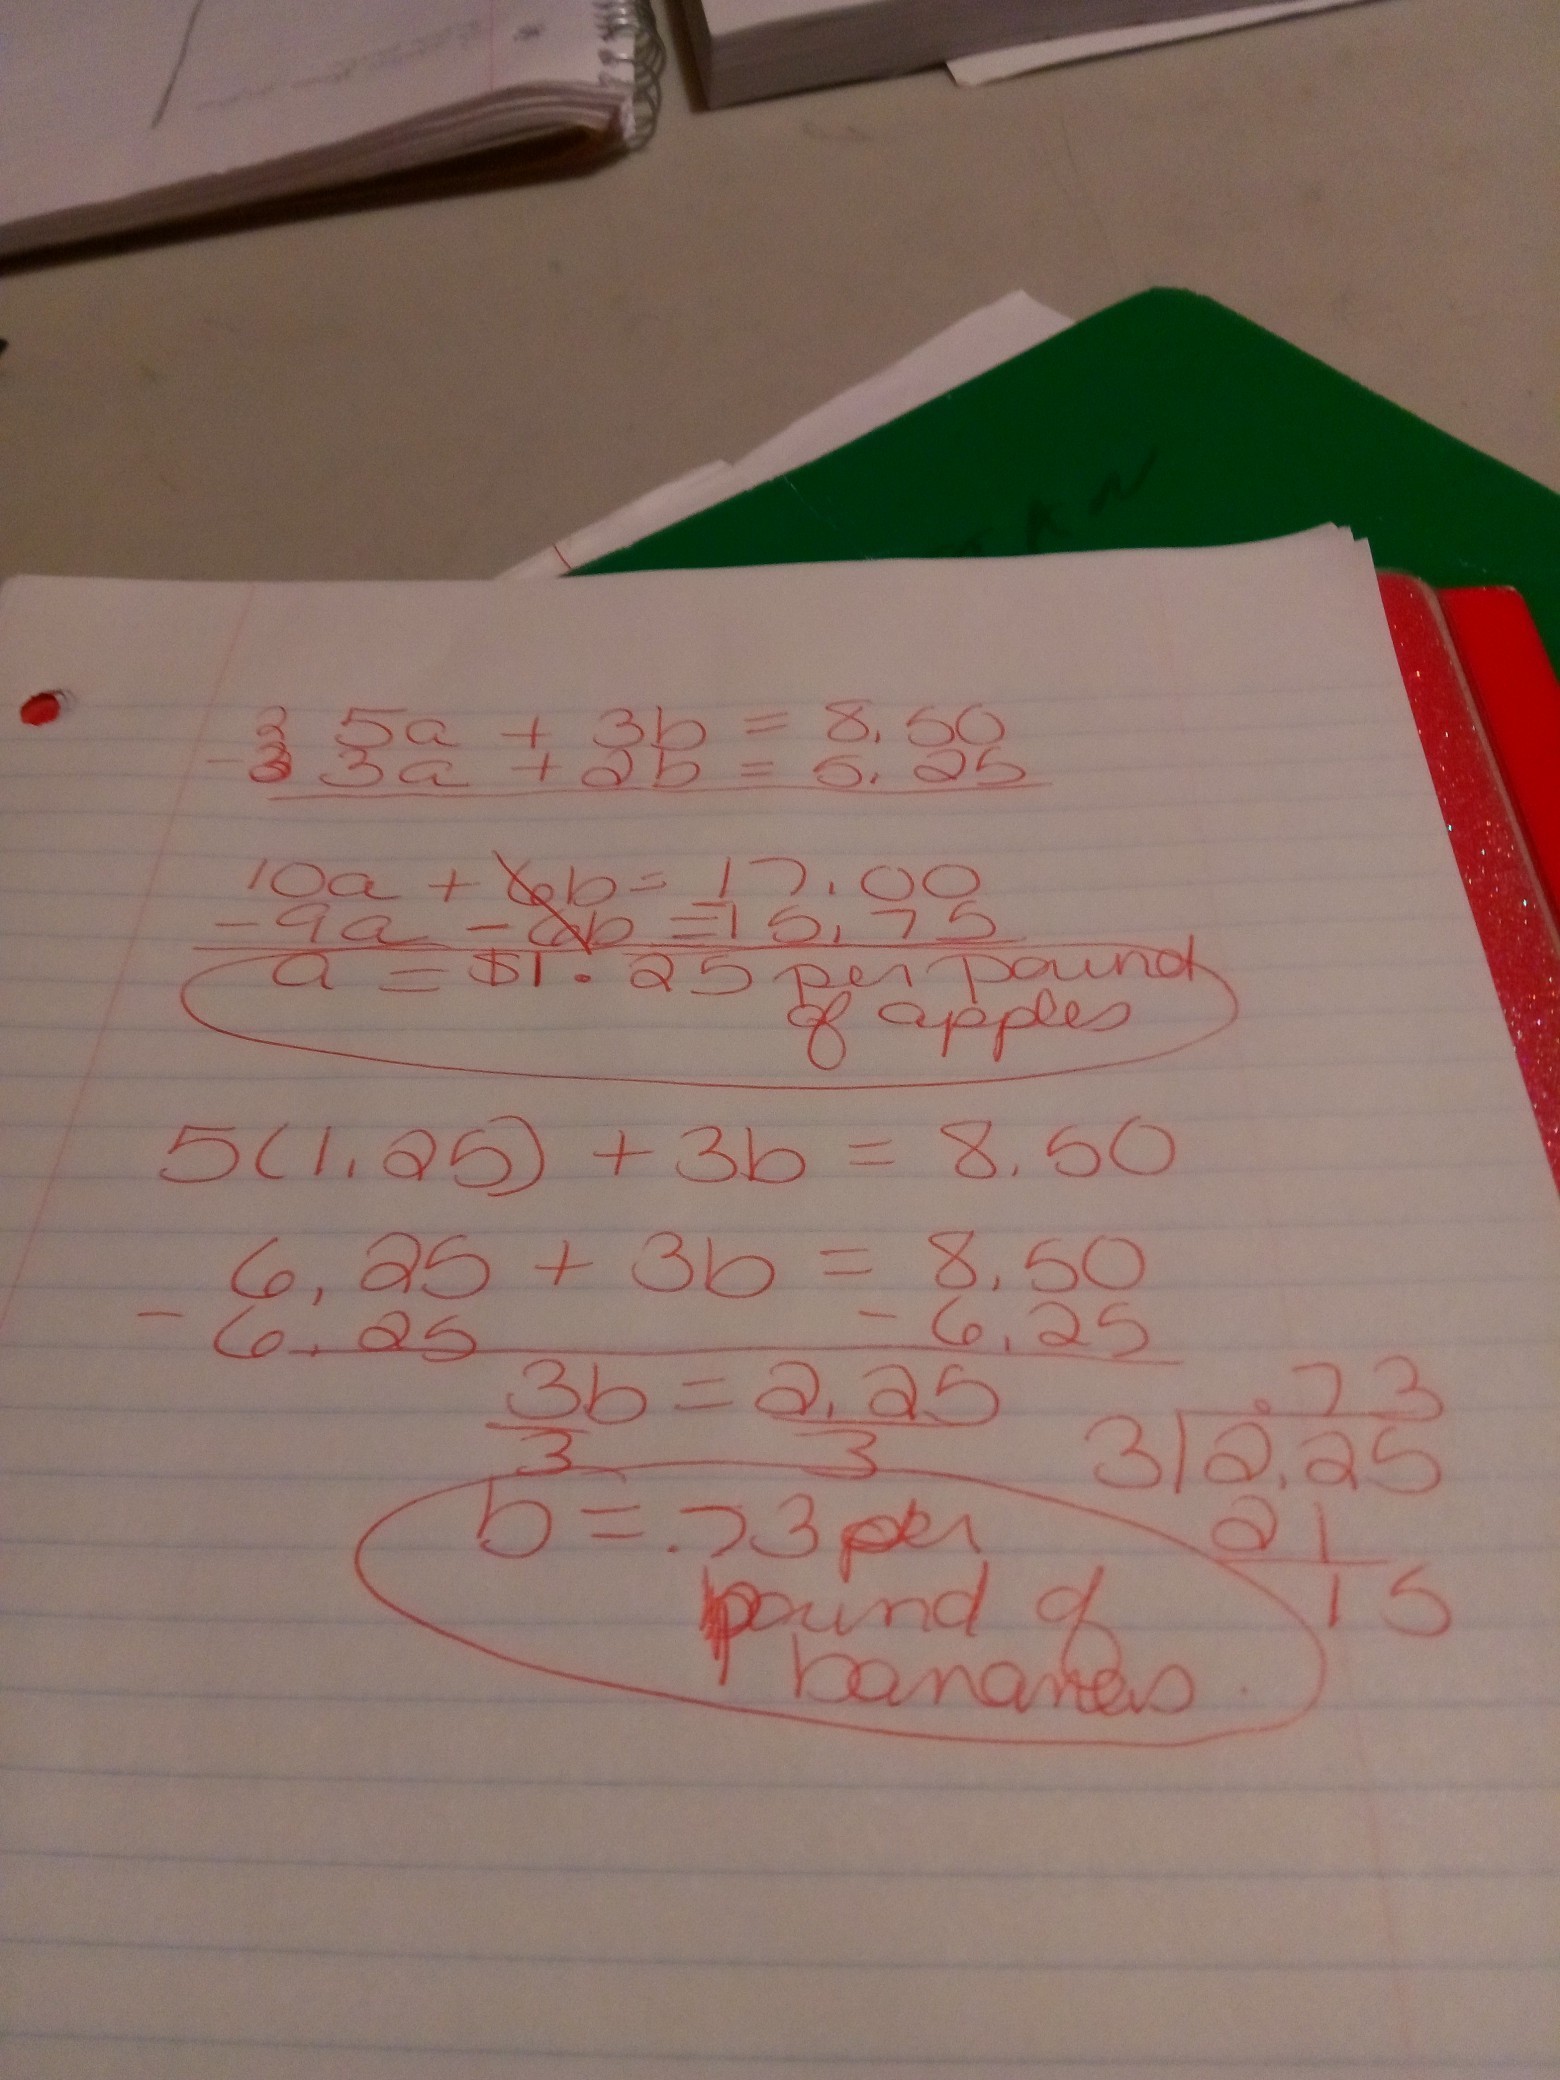 2 5a + 3b = 8.50
-3 3a + 2b = 5.25
10a + 6b = 17.00
-9a - 6b = 15.75
a = $1.25 per pound
of apples
5(1.25) + 3b = 8.50
6.25 + 3b = 8.50
- 6.25 - 6.25
3b = 2.25
3 3
.73
3 2.25
21
15
b = .73 per
pound of
bananas